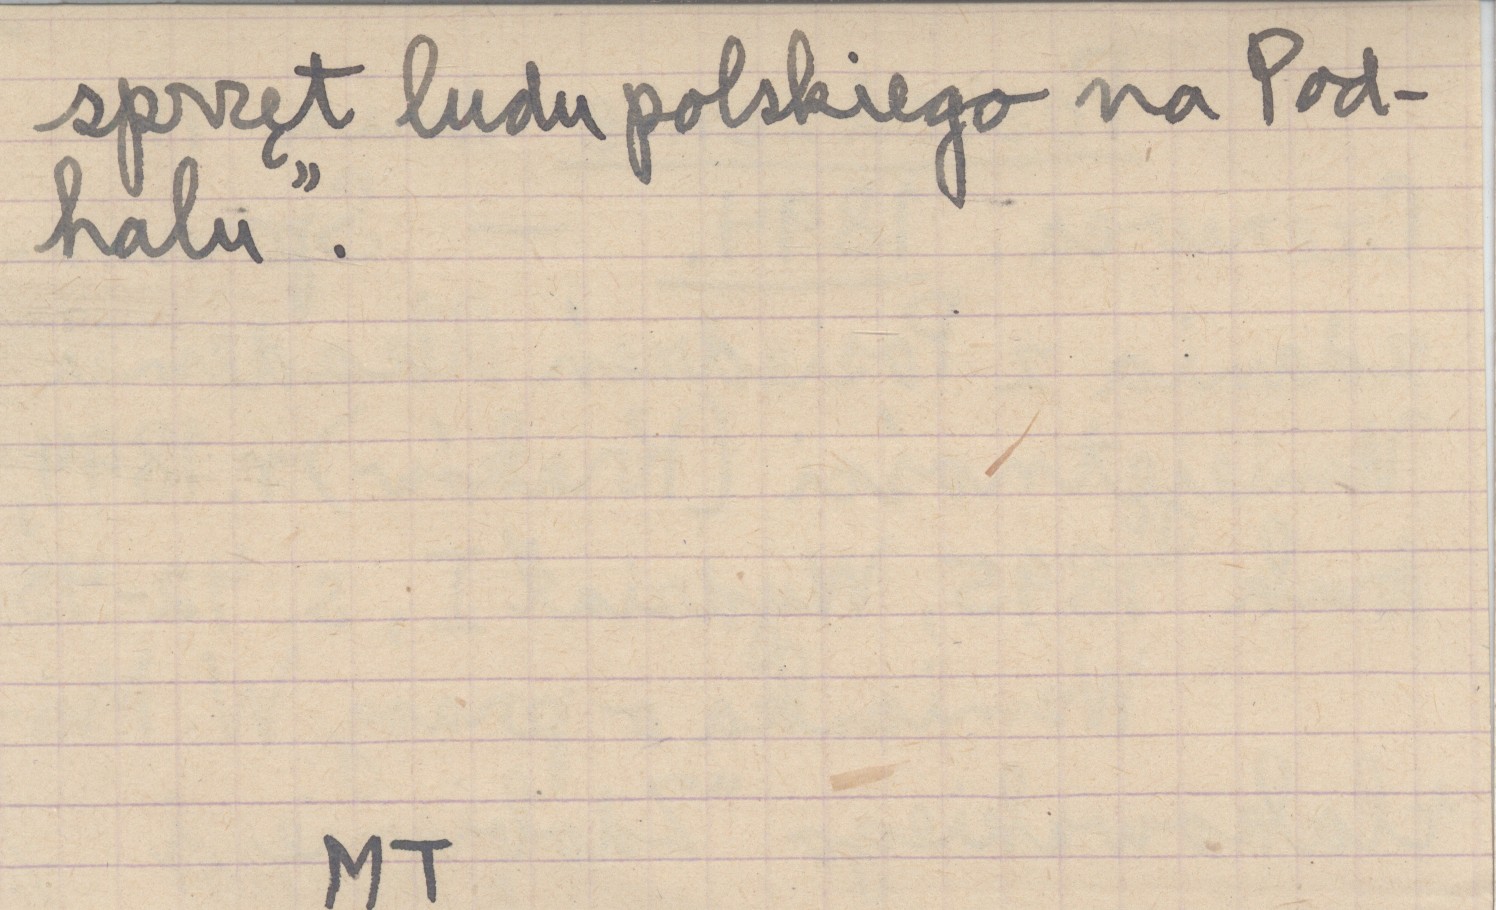 sprzęt ludu polskiego na Pod-
halu”.
MT